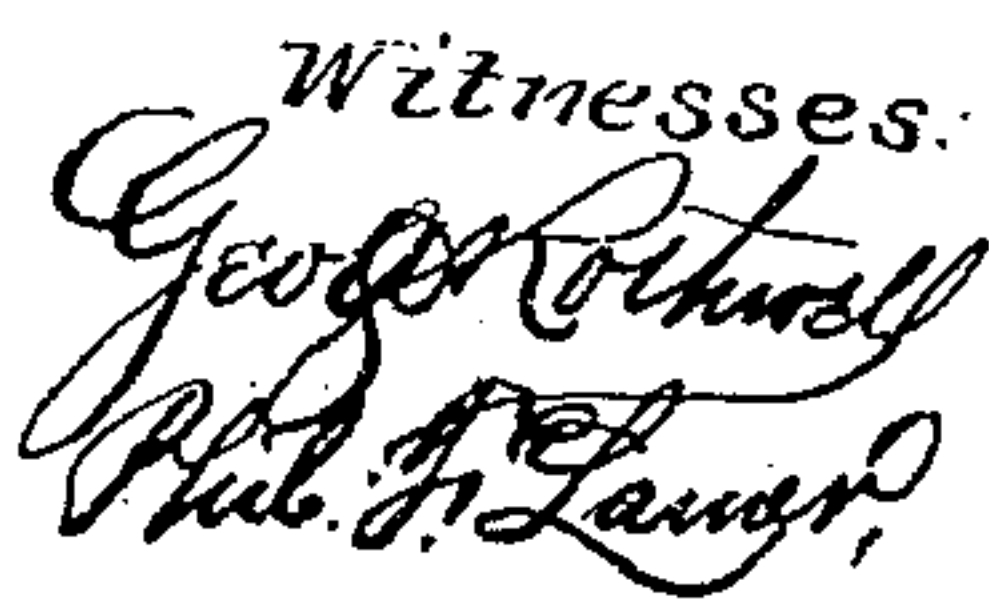 Witnesses:
Geo. Rothwell
Phil. F. Larner,